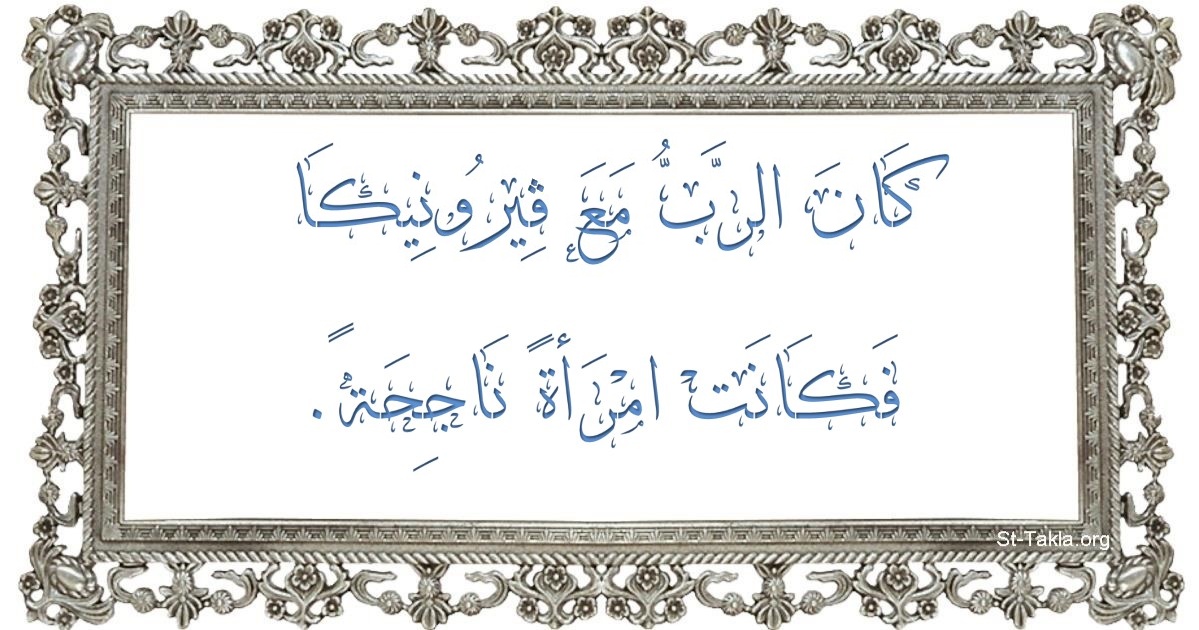 كَانَ الرَّبُّ مَعَ ڤِيرُونِيكَا
فَكَانَتْ امْرَأَةً نَاجِحَةً.
St-Takla.org